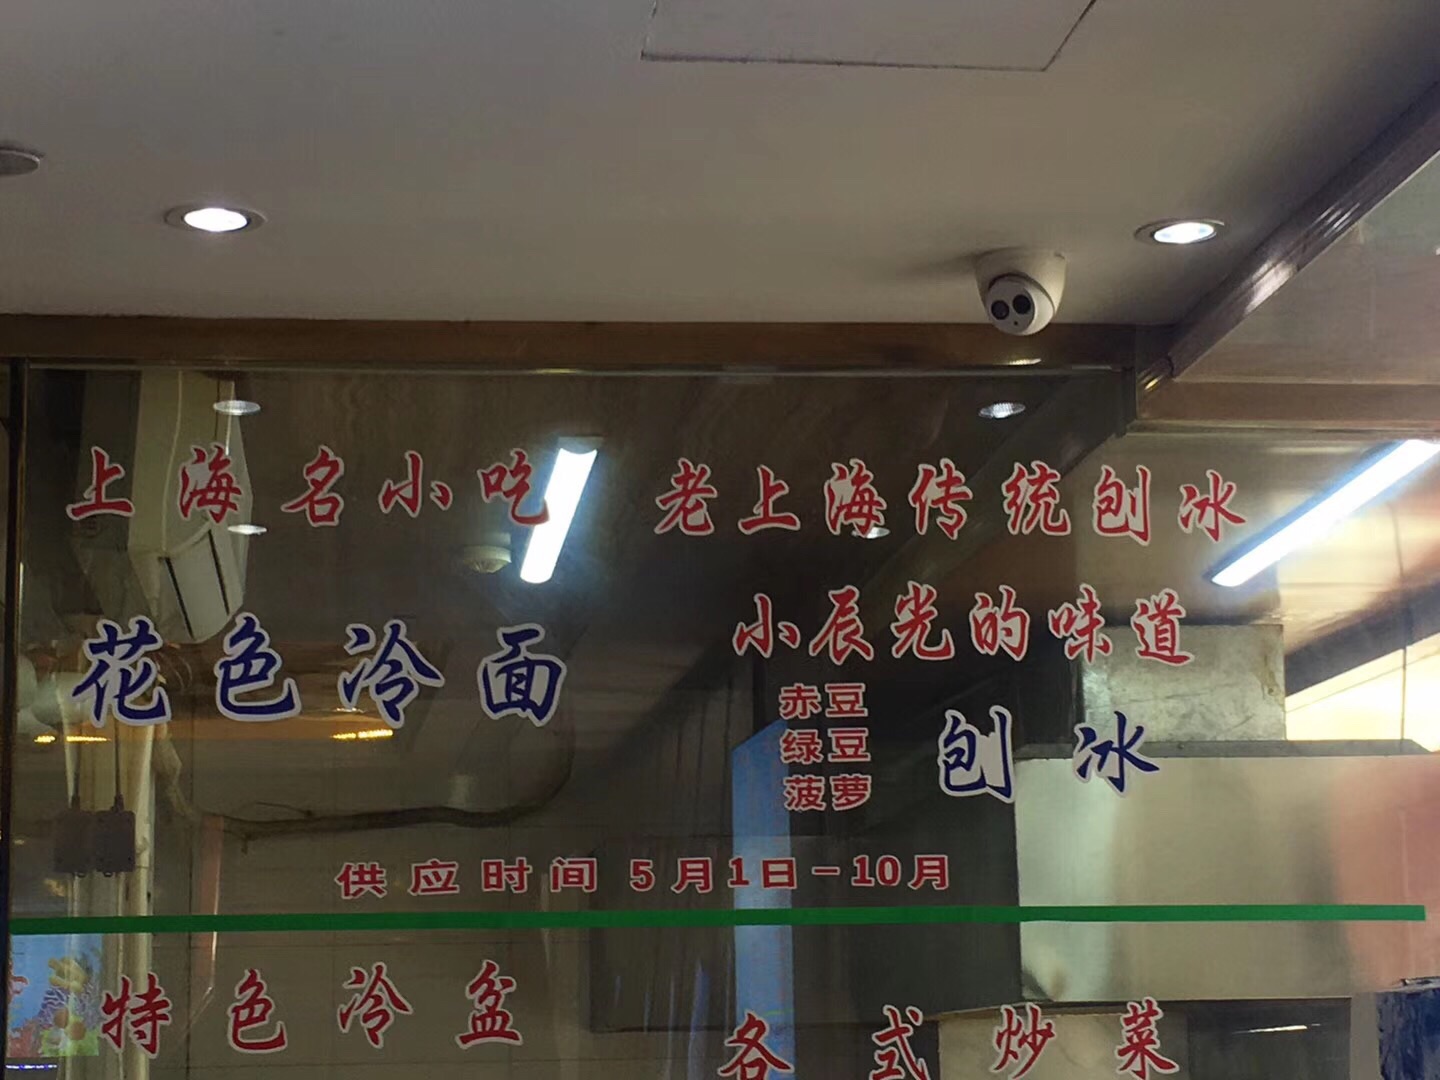 上海名小吃
花色冷面
老上海传统刨冰
小辰光的味道
赤豆
绿豆
菠萝
刨冰
供应时间 5月1日-10月
特色冷盆
各式炒菜